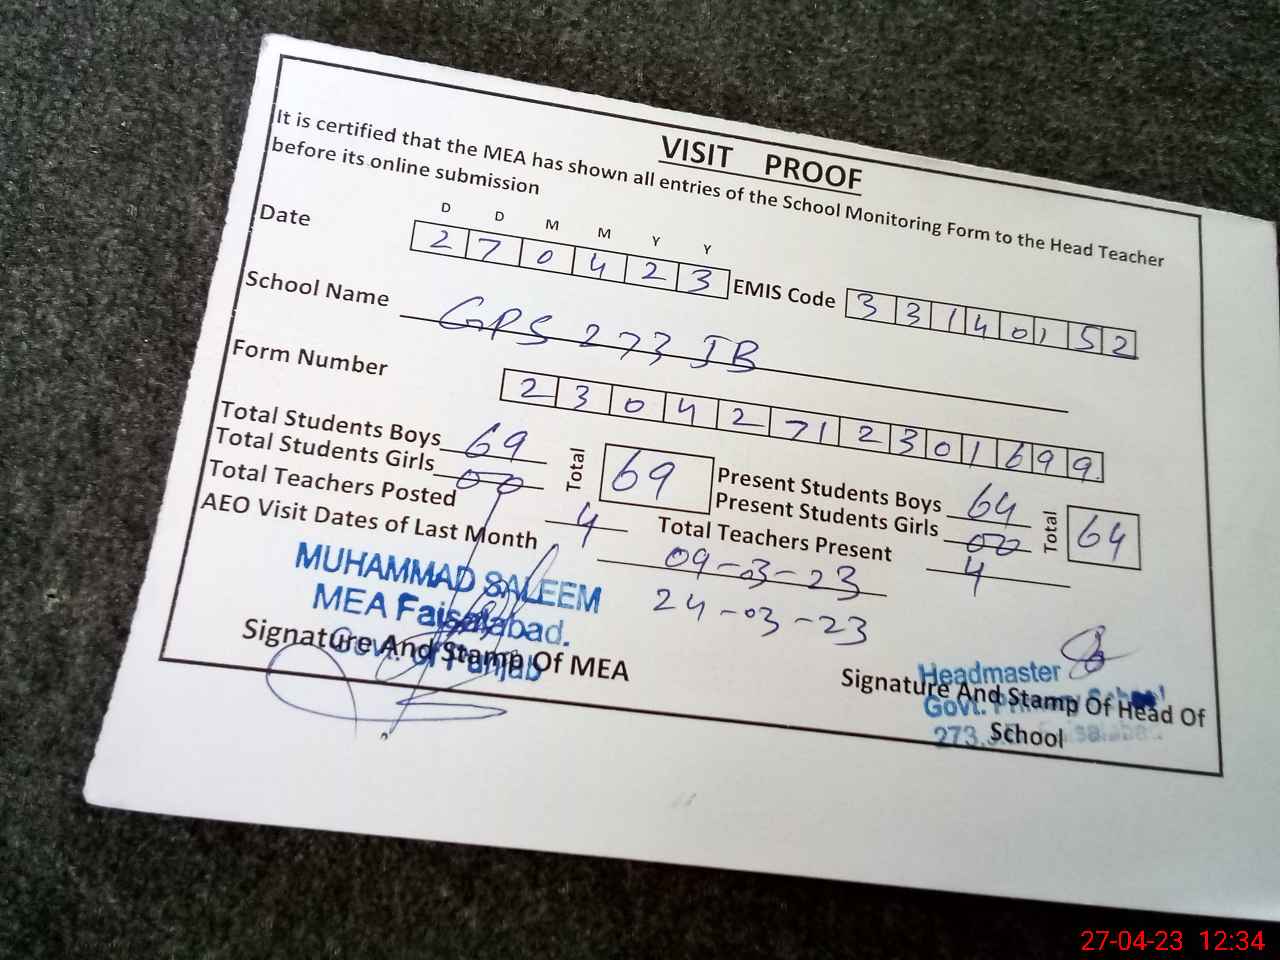 VISIT PROOF
It is certified that the MEA has shown all entries of the School Monitoring Form to the Head Teacher
before its online submission
D D M M Y Y
Date 2 7 0 4 2 3 EMIS Code 3 3 1 4 0 1 5 2
School Name GPS 273 JB
Form Number 2 3 0 4 2 7 1 2 3 0 1 6 9 9
Total Students Boys 69 Total 69 Present Students Boys 64 Total 64
Total Students Girls 00 Present Students Girls 00
Total Teachers Posted 4 Total Teachers Present 4
AEO Visit Dates of Last Month 09-03-23
24-03-23
MUHAMMAD SALEEM
MEA Faisalabad.
Govt. of Punjab
Signature And Stamp Of MEA
Headmaster
Govt. Primary School
273 Faisalabad
Signature And Stamp Of Head Of
School
27-04-23 12:34